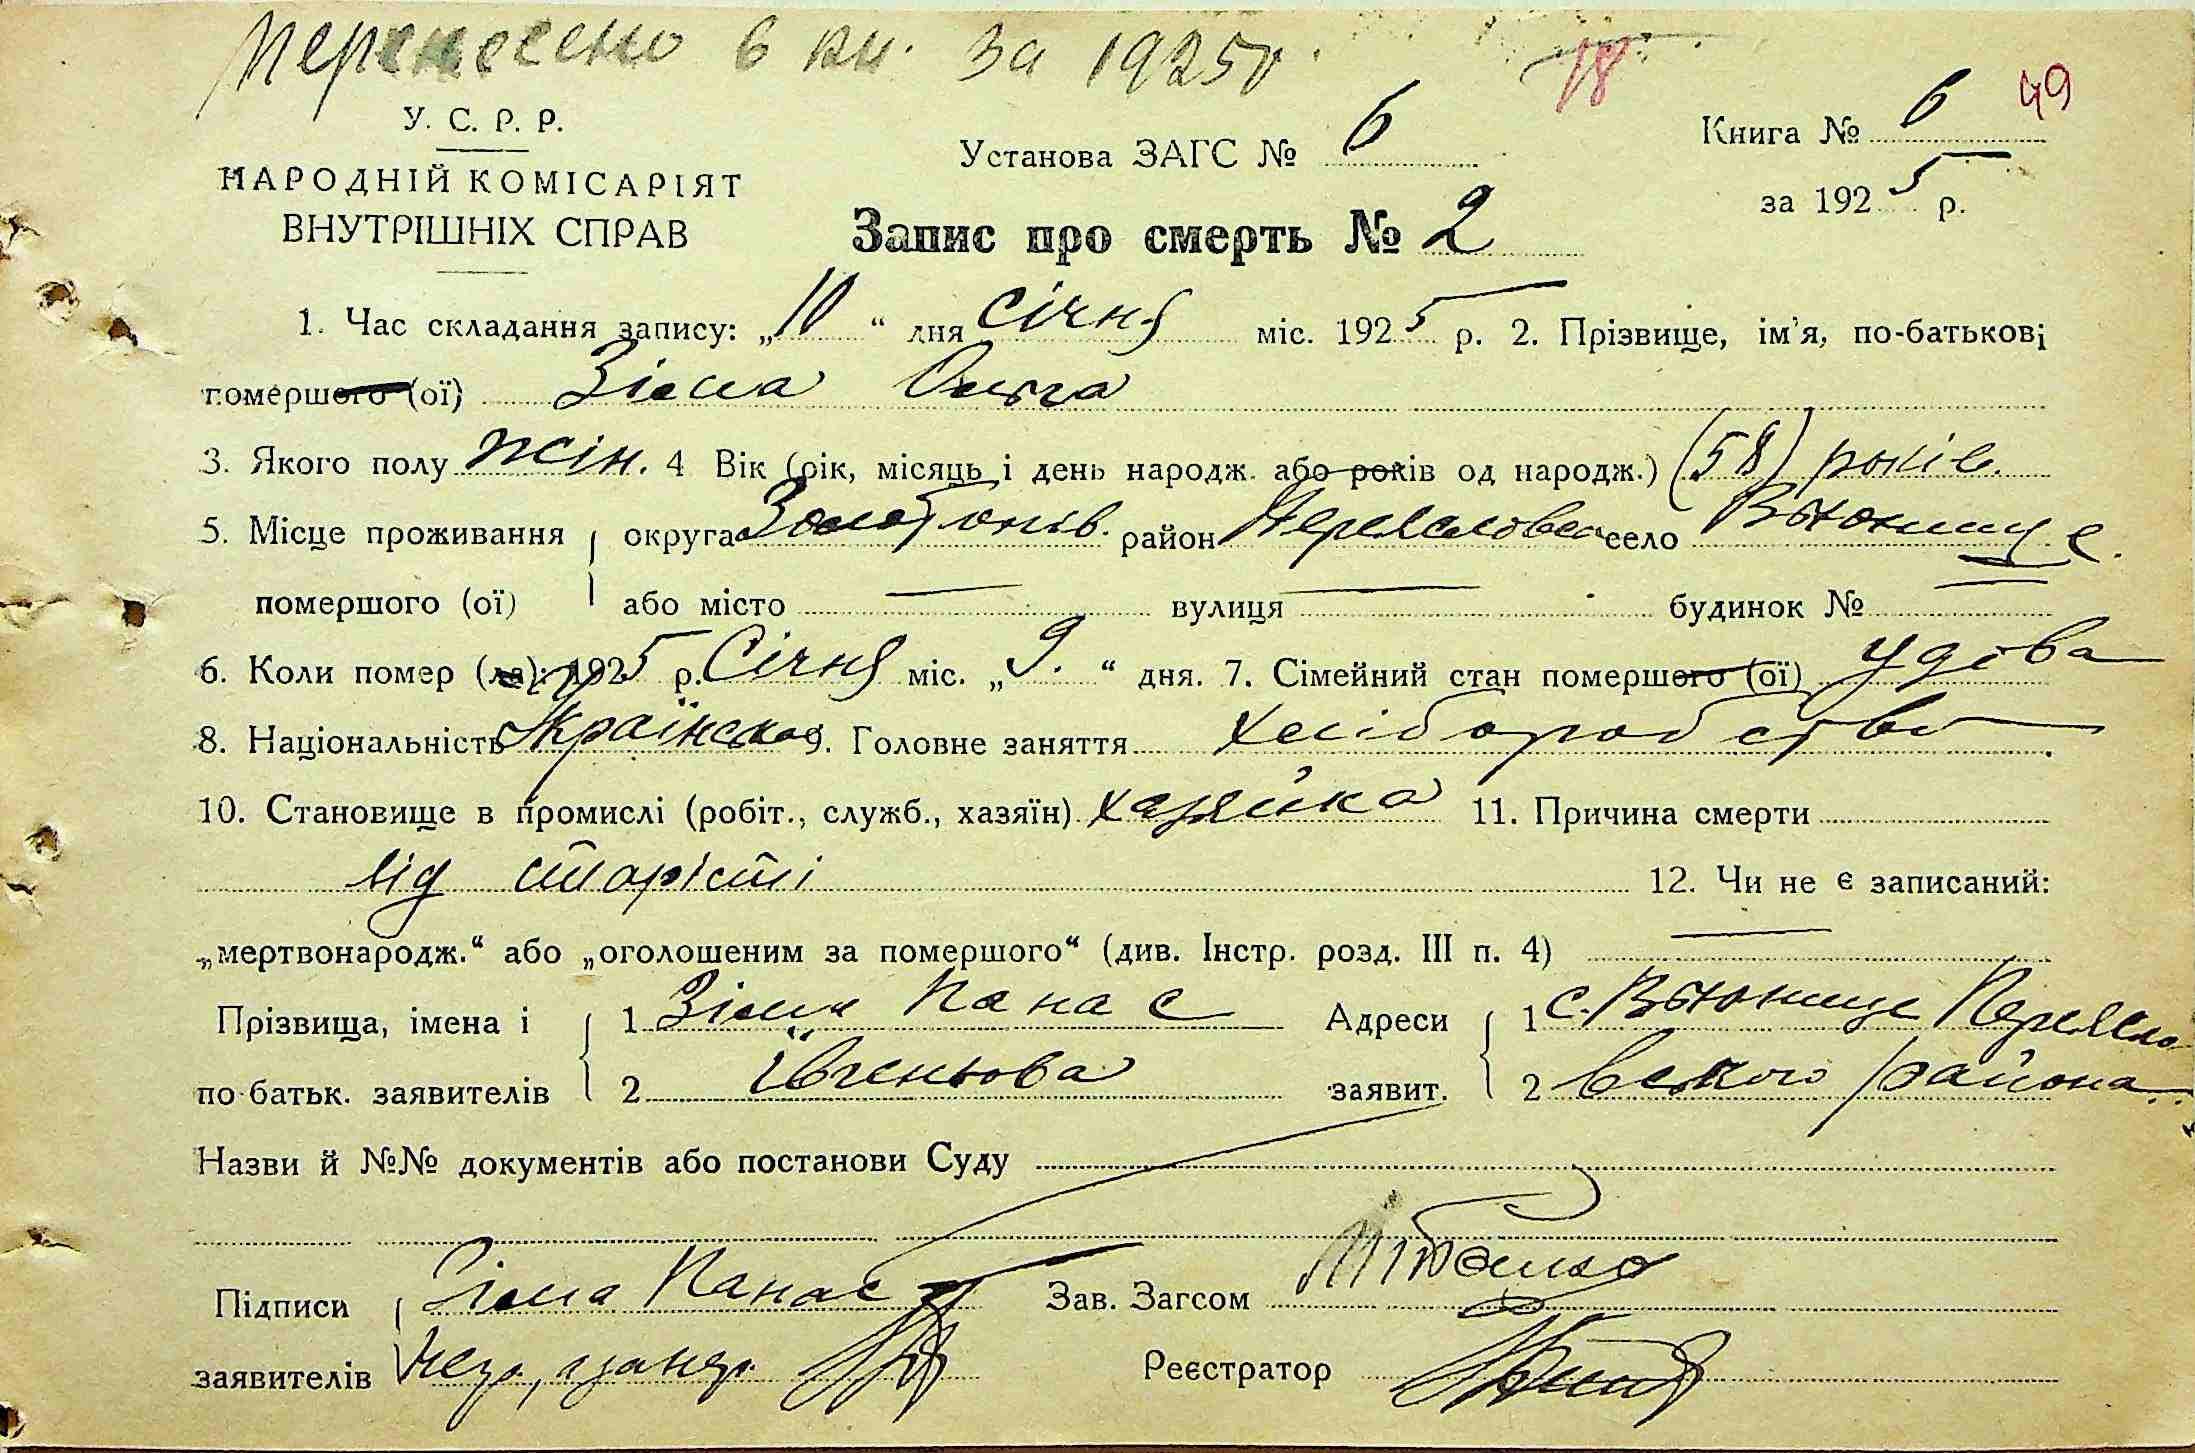 Перенесено в кн. за 1925 г.
18
49
У. С. Р. Р.
НАРОДНІЙ КОМІСАРІЯТ
ВНУТРІШНІХ СПРАВ
Установа ЗАГС № 6
Книга № 6
за 1925 р.
Запис про смерть № 2
1. Час складання запису: „10“ дня січня міс. 1925 р. 2. Прізвище, ім'я, по-батькові
помершого (ої) Зіма Ольга
3. Якого полу жін. 4 Вік (рік, місяць і день народж. або років од народж.) (58) років.
5. Місце проживання округа Золотонів. район Переяславськ село Вьюнище.
помершого (ої) або місто — вулиця — будинок № —
6. Коли помер (ла): 1925 р. Січня міс. „9.“ дня. 7. Сімейний стан помершого (ої) удова
8. Національність Українська 9. Головне заняття хліборобство
10. Становище в промислі (робіт., служб., хазяїн) хазяйка 11. Причина смерти
від старісті 12. Чи не є записаний:
„мертвонародж.“ або „оголошеним за помершого“ (див. Інстр. розд. III п. 4) —
Прізвища, імена і 1 Зіма Панас Адреси 1 с. Вьюнище Переясла
по батьк. заявителів 2 Івгеньова заявит. 2 вського района
Назви й №№ документів або постанови Суду
Підписи Зіма Панас Зав. Загсом
заявителів Реєстратор